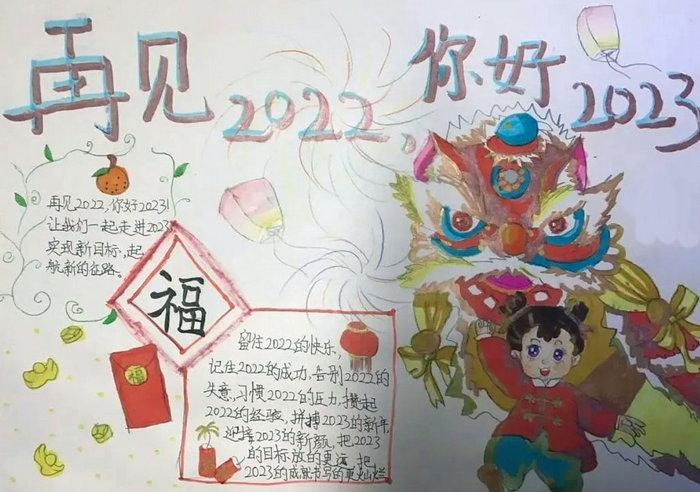 再见2022、你好2023
再见2022,你好2023!
让我们一起走进2023
实现新目标,起
航新的征路。
福
福
留住2022的快乐,
记住2022的成功,告别2022的
失意,习惯2022的压力,攒起
2022的经验,拼搏2023的新年,
迎接2023的新颜,把2023
的目标放的更远,把
2023的成果书写的更灿烂